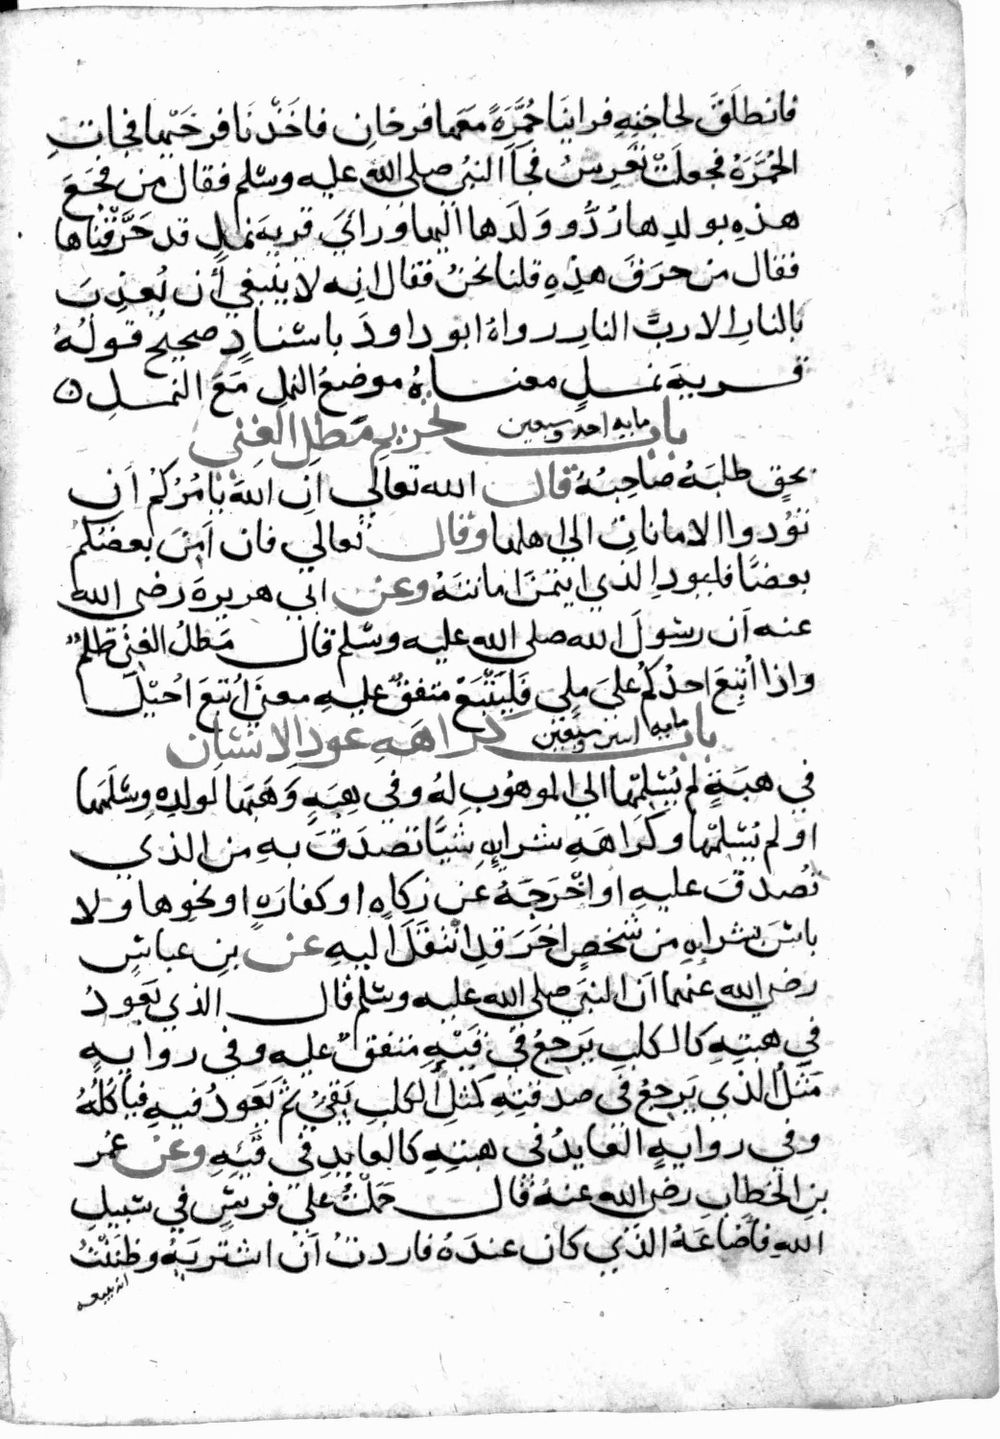 فانطلَقَ لحاجته فراينَا حُمَّرَةً معها فرخانِ فاخَذْنَا فرخَيْها فجاتِ
الحُمَّرَةُ فجعلَتْ تَعْرِسُ فجآ النبىُ صلى الله عليه وسلم فقال من فجعَ
هذه بولدِها رُدُّو وَلَدها اليها ورَاىَ قريةَ نملٍ قد حَرَّقْناها
فقال من حرَقَ هذِهِ قلنا نحنُ فقال انه لا ينبغي أن يُعذِبَ
بالنارِ الا ربُّ النارِ رواهُ ابو داودَ باسنادٍ صحيحٍ قولُهُ
قريةَ نملٍ معناهُ موضعُ النملِ مَعَ النملِ ه
باب مايه احد وسبعين تحريم مَطلِ الغنِي
بحقٍ طلبَهُ صَاحِبُهُ قال الله تعالي اَن اللهَ يامُرُكُم اَن
تؤدوا الامانات الي اهلها وقال تعالي فان اَمنَ بعضُكمُ
بعضًا فليودِ الذي ايتمنَ امانتهُ وعن ابي هريرةَ رضى الله
عنه اَن رسُولَ الله صلى الله عليه وسلم قال مَطلُ الغنِى ظلمٌ
واذا أُتبِعَ احدُكمُ علىَ ملِى فَليَتْبَعْ متفقٌ عليه معنَى اُتبعَ اُحيْلَ
باب مايه اسىن وسبعين كراهَهِ عودِ الانسَان
في هبةٍ لم يُسَلّمْها الي الموهُوبِ لهُ وفي هِبَهٍ وَهَبَها لولدِهِ وسَلَّمَها
او لم يُسلمْها وكَرَاهَهِ شرايهِ شيًا تصدَقَ بهِ من الذي
تُصدقَ عليهِ او اخْرَجَهُ عن زكاهٍ او كفارَهٍ او نحوها ولا
باسَ بشرايهِ من شخصٍ اخَرَ قدِ انتقَلَ اليهِ عن بن عباسٍ
رضى الله عنهما اَن النبىَ صلى الله عليه وسلم قال الذي يعُودُ
في هبتِهِ كالكلبِ يَرجِعُ في قَيْهِ متفقٌ عليه وفي روايهٍ
مَثَلُ الذي يَرجِعُ في صدقتِهِ كمثلِ الكلبِ يَقىُ ثم يَعُودُ فيهِ فياكُلُهُ
وفي روايهٍ العَايدُ في هبتِهِ كالعايدِ في قَيْهِ وعن عُمر
بن الخطابِ رضى الله عنهُ قال حَملْتُ على فرسٍ في سَبيلِ
اللهِ فاَضَاعَهُ الذي كان عندَهُ فاردتُ اَنْ اشتريَهُ وظننْتُ
انه يبيعه